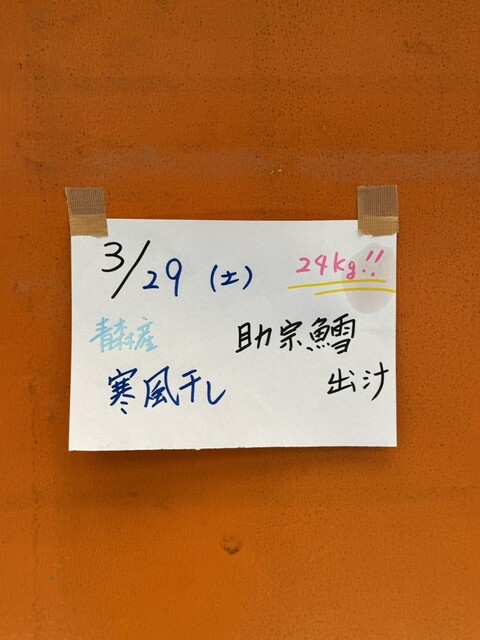 3/29(土) 24kg!!
青森産 助宗鱈
寒風干し 出汁